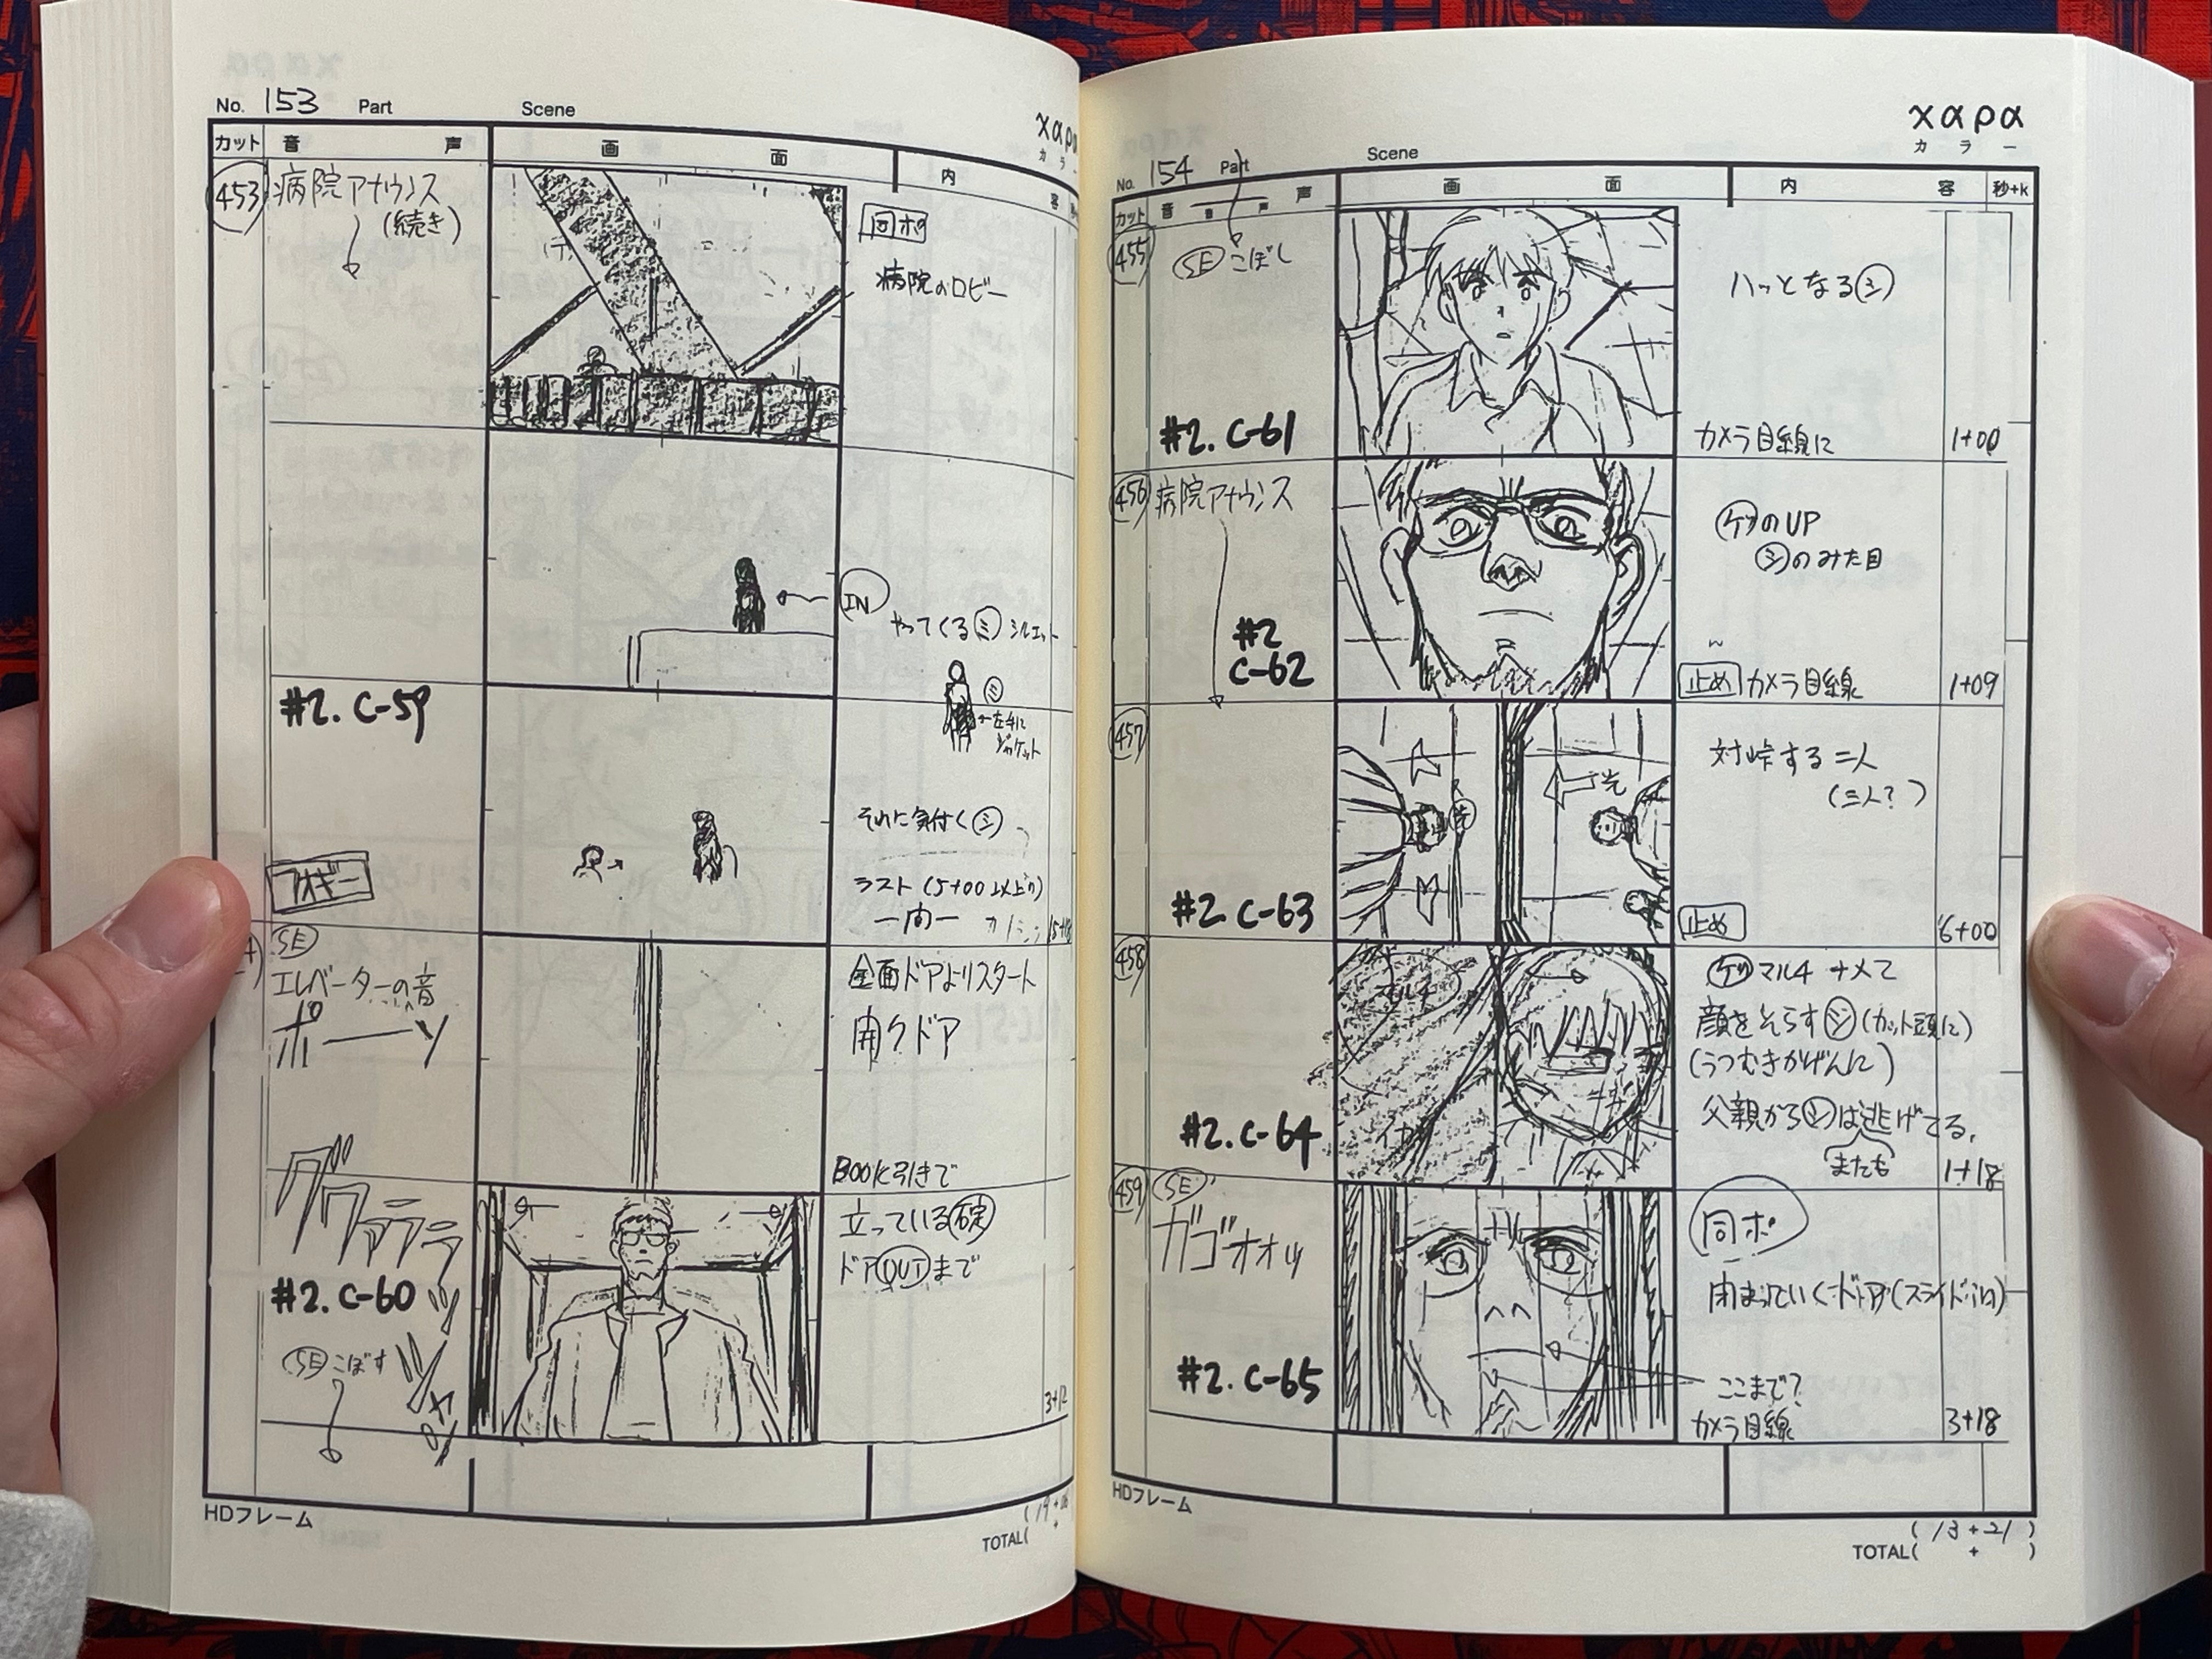 No. 153 Part Scene
χαρα
カラ
カット 音 声 画 面 内 容
453 病院アナウンス
(続き)
同ポ
病院のロビー
IN
やってくるミ シルエット
#2. C-59
ミ
←左手に
ジャケット
それに気付くシ
ラスト(5+00以上の)
一向一
フォギー
SE
エレベーターの音
ポーーッ
全面ドアよりスタート
開クドア
BOOK引きで
立っている碇
ドアOUTまで
#2. C-60
SE こぼす
3+12
HDフレーム
TOTAL(
No. 154 Part Scene
χαρα
カラー
カット 音 声 画 面 内 容 秒+k
455 SE こぼし
ハッとなるシ
#2. C-61
カメラ目線に 1+00
456 病院アナウンス
ゲのUP
シのみた目
#2
C-62
止め カメラ目線 1+09
457
光
対峠する二人
(三人?)
#2 C-63
止め 6+00
458
マルチ
ゲ マルチ ナメて
顔をそらすシ(カット頭に)
(うつむきかげんに)
父親からシは逃げてる、
またも
#2. C-64
1+18
459 SE
ガゴオオッ
同ポ
閉まっていくドア(スライド)
#2. C-65
ここまで?
カメラ目線 3+18
HDフレーム
( 13 + 21 )
TOTAL( + )